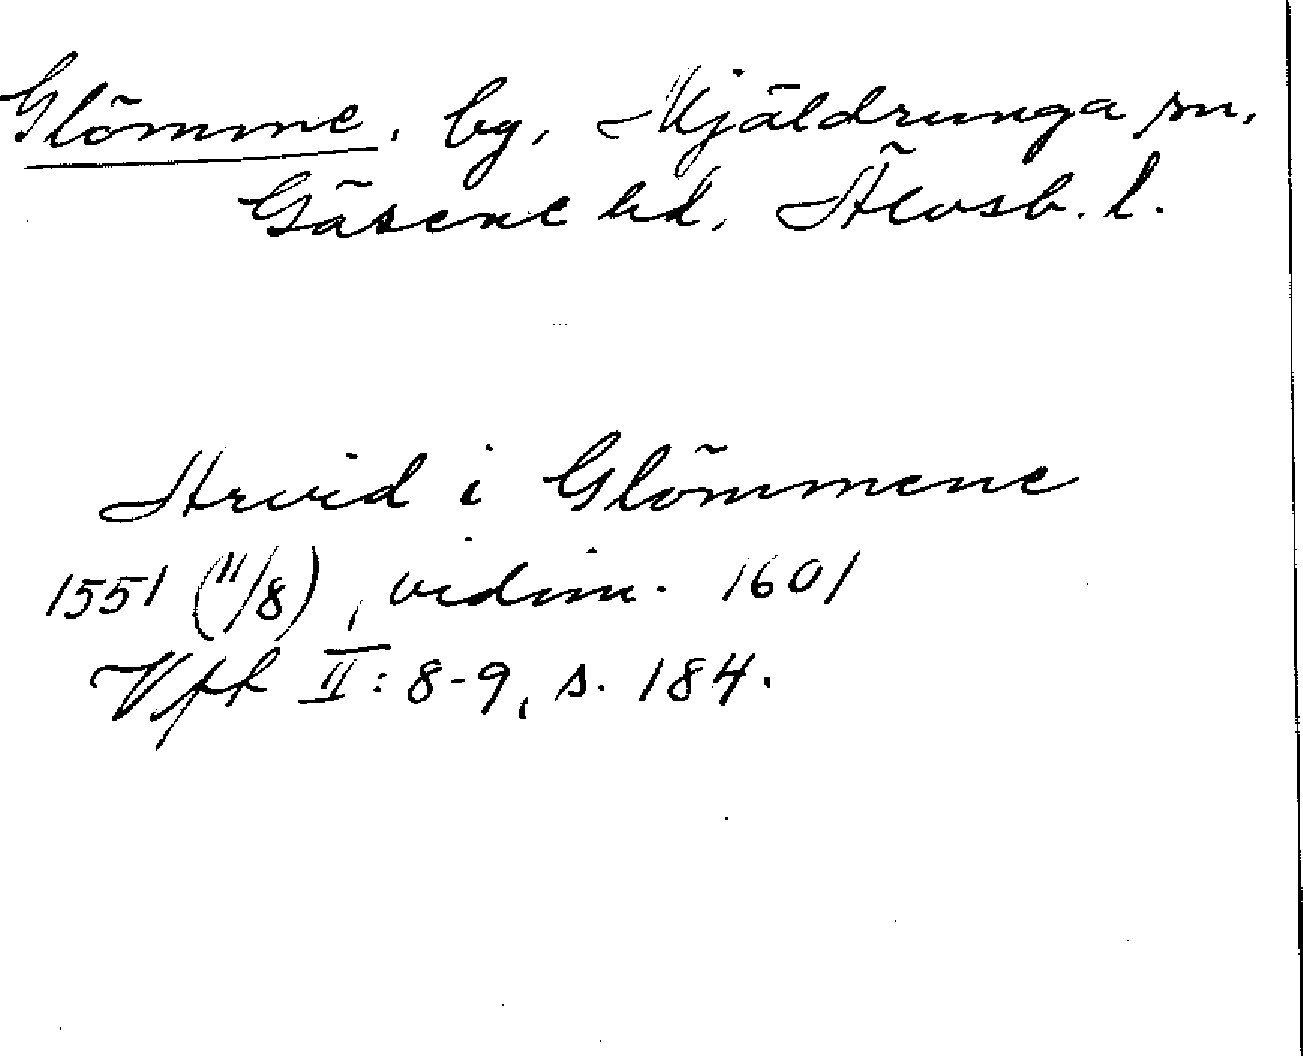 Glömme, by, Mjäldrunga sn,
Gäsene hd, Älvsb. l.
Arvid i Glömmene
1551 (11/8), vidim. 1601
Vft II: 8-9, s. 184.